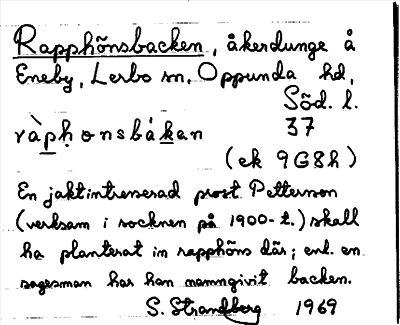 Rapphönsbacken, åkerdunge å
Eneby, Lerbo sn, Oppunda hd,
Söd. l.
ràpḥonsbákan 37
(ek 9G8h)
En jaktintresserad prost Petterson
(verksam i socknen på 1900-t.) skall
ha planterat in rapphöns där; enl. en
sagesman har han namngivit backen.
S. Strandberg 1969